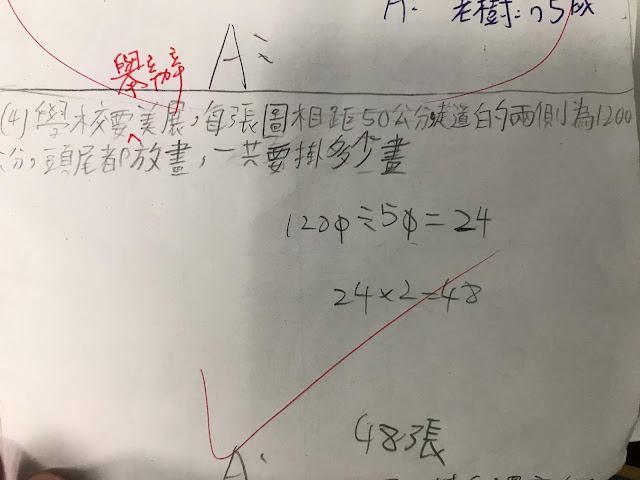 A: 老樹:75歲
A:
舉辦
(4)學校要美展,每張圖相距50公分,走道白的兩側為1200
公分,頭尾都放畫,一共要掛多少畫
1200÷50=24
24×2=48
A: 48張